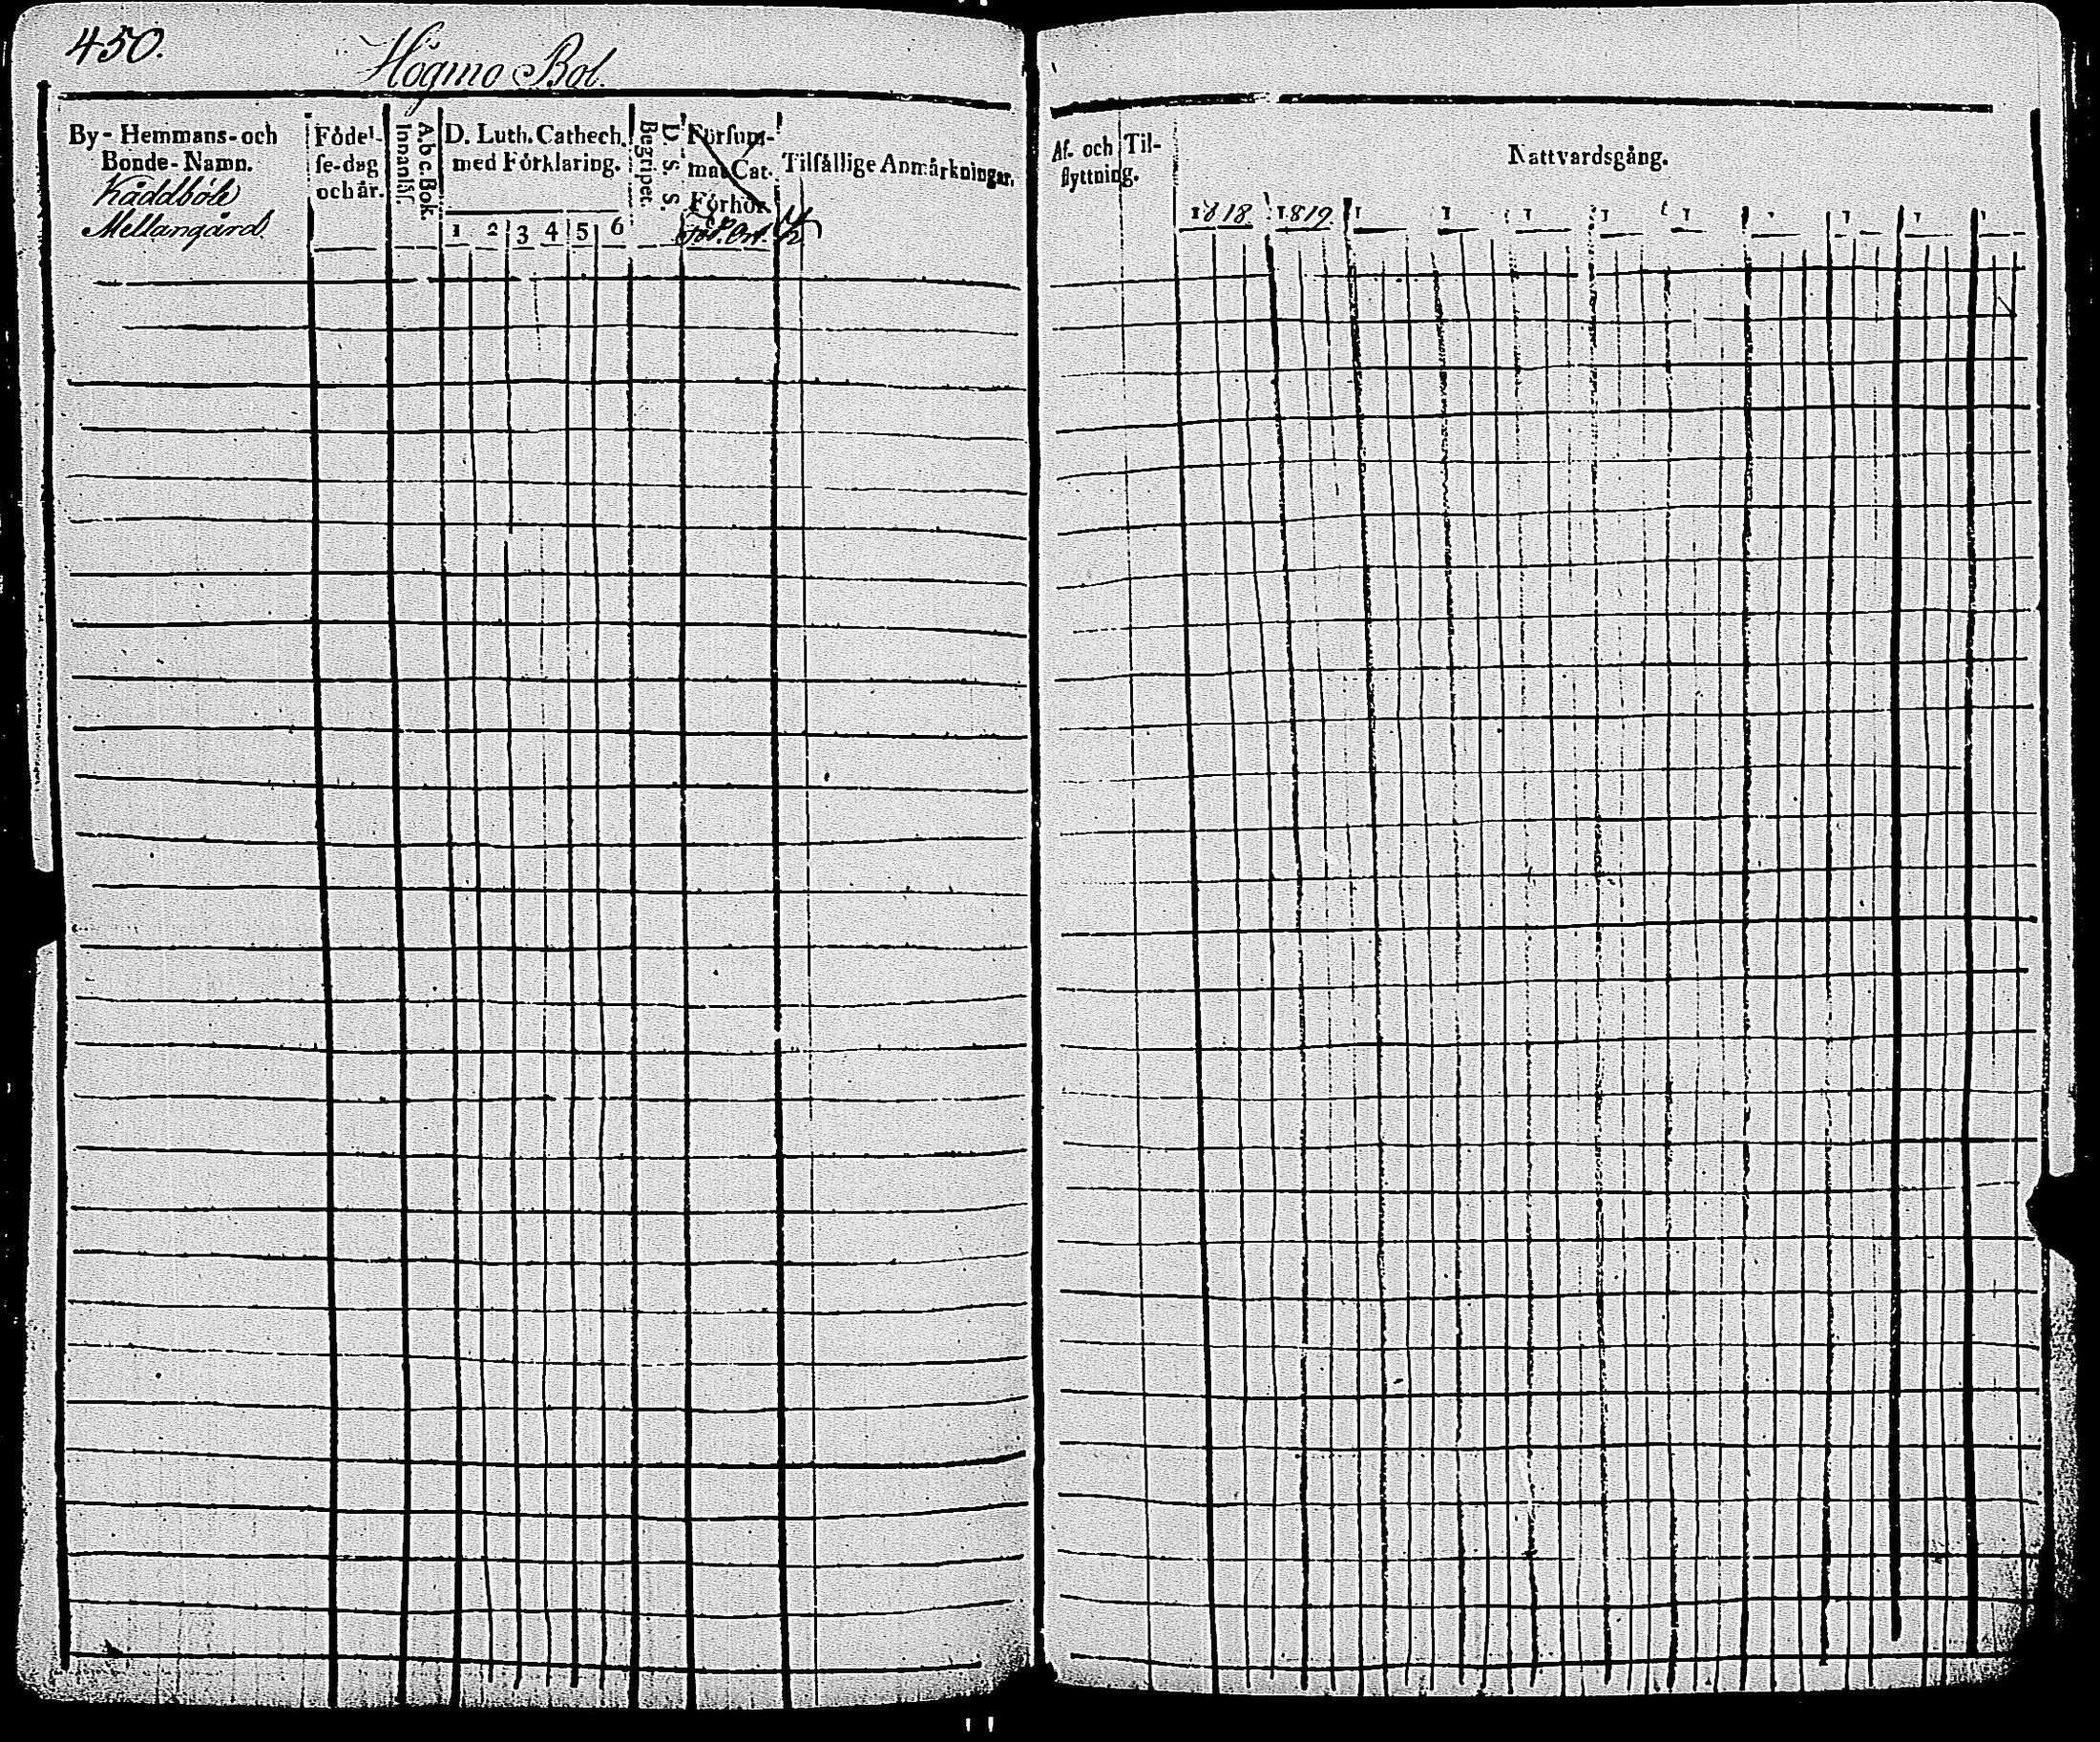 450.
Högmo Bol.
By-Hemmans-och
Bonde-Namn.
Kåddböle
Mellangård
Födel-
se-dag
och år.
A b c. Bok.
Innanläs.
D. Luth. Cathech.
med Förklaring.
1 2 3 4 5 6
D. S. S.
Begriper.
Försum-
mat Cat.
Förhör
Tilfällige Anmärkningar.
Af- och Til-
flyttning.
Nattvardsgång.
1818 1819 1 1 1 1 1 1 1